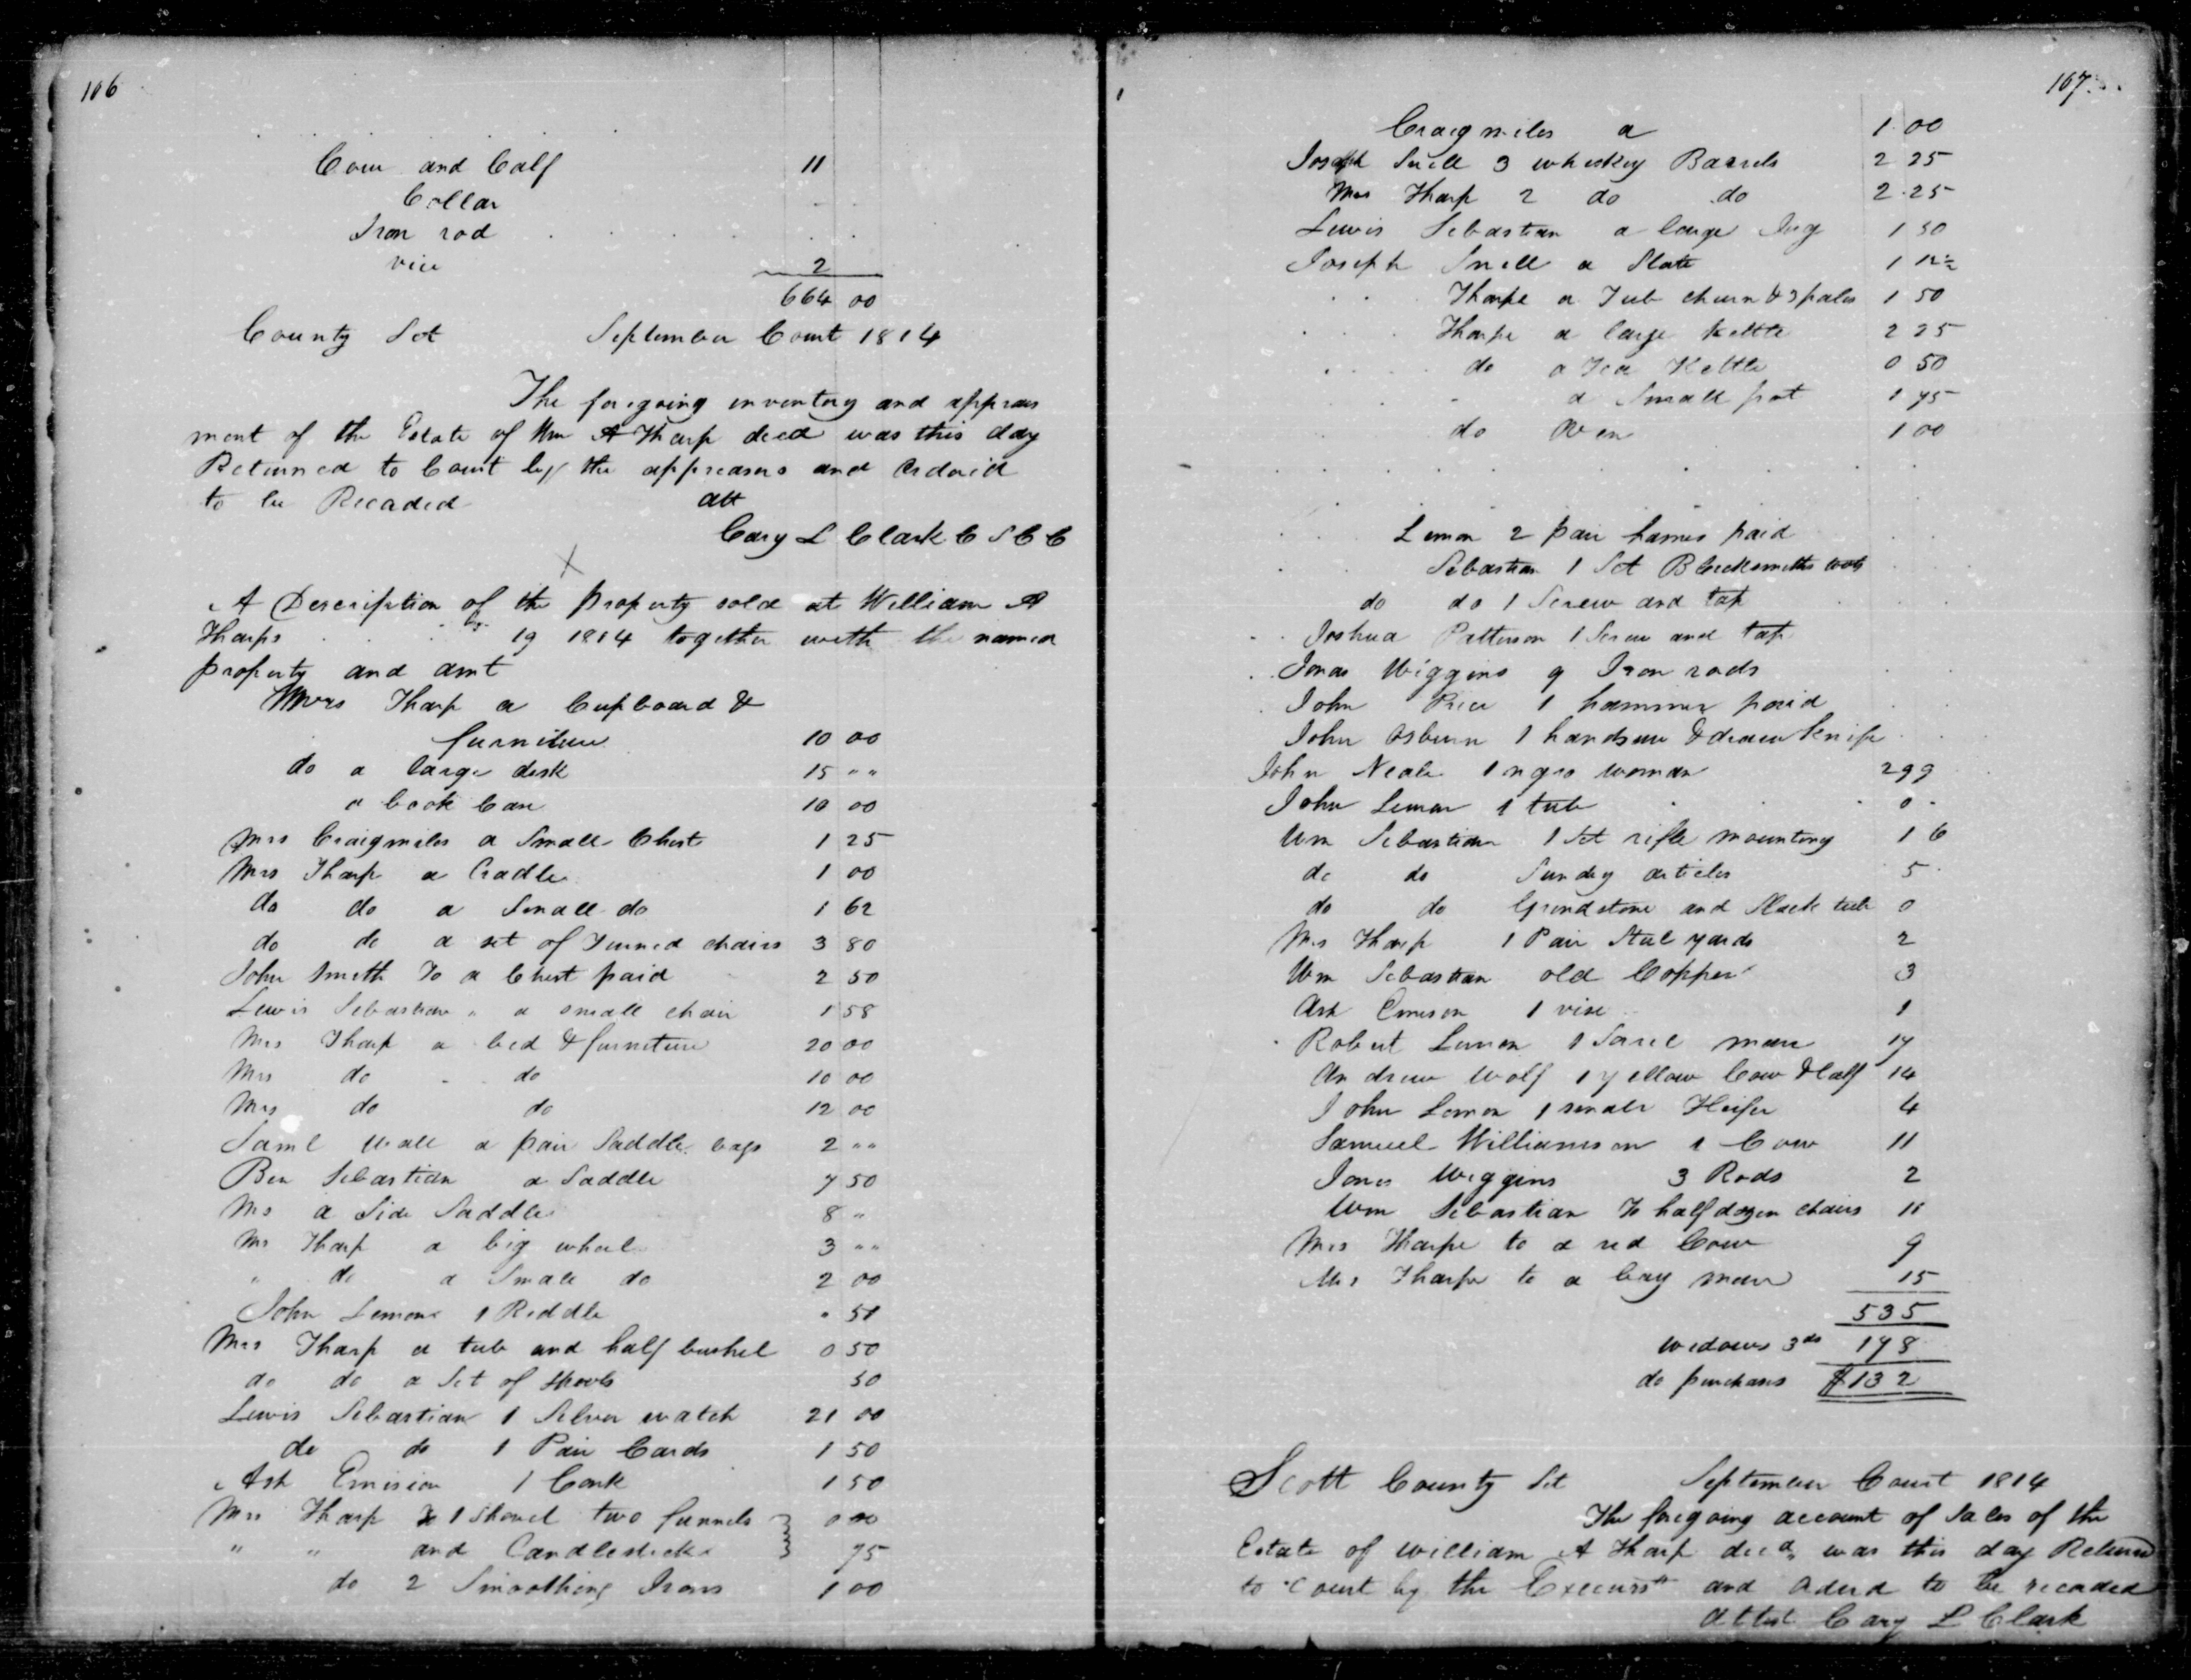 106
Cow and Calf 11
Collar . .
Iron rod . . . . . .
vice 2
664 00
County Sct September Court 1814
The foregoing inventory and apprais
ment of the Estate of Wm A Tharp decd was this day
Returned to Court by the appreasers and Ordaid
to be Recaded
att
Cary L Clark C S C C
X
A Description of the Property sold at William A
Tharps 19 1814 together with the named
property and amt
Mrs Tharp a Cupboard &
furniture 10 00
do a large desk 15 " "
a book Case 10 00
Mrs Craigmiles a Small Chest 1 25
Mrs Tharp a Cradle 1 00
do do a Small do 1 62
do do a set of Turned chairs 3 80
John Smith To a Chest paid 2 50
Lewis Sebastian " a small chair 1 58
Mrs Tharp a bed & furniture 20 00
Mrs do - do 10 00
Mrs do do 12 00
Saml Wall a pair Saddle bags 2 " "
Ben Sebastian a Saddle 7 50
Ms a Side Saddle 8 "
Mrs Tharp a big wheel 3 " "
" do a Small do 2 00
John Lemons 1 Riddle " 51
Mrs Tharp a tub and half bushel 0 50
do do a Set of Spools 50
Lewis Sebastian 1 Silver watch 21 00
do do 1 Pair Cards 1 50
Ash Emison 1 Cask 1 50
Mrs Tharp to 1 Shovel two funnels } 0 00
" " and Candlesticks } 75
do 2 Smoothing Irons 1 00
167
Craigmiles a 1 00
Joseph Snell 3 whiskey Barrels 2 25
Mrs Tharp 2 do do 2.25
Lewis Sebastian a large Jug 1 50
Joseph Snell a Slate 1 12½
Tharpe a Tub churn & 3 pales 1 50
Tharpe a large Kettle 2 25
do a Tea Kettle 0 50
a Small pot 1 75
do Oven 1 00
Lemon 2 pair hames paid
Sebastian 1 Set Blacksmiths tools
do do 1 Screw and tap
Joshua Patterson 1 Screw and tap
Jonas Wiggins 9 Iron rods
John Price 1 hammer paid
John Osburn 1 handsaw & draw knife
John Neale 1 negro woman 299
John Lemon 1 tub 0
Wm Sebastian 1 Set rifle mounting 1 6
do do Sundry articles 5
do do Grindstone and Slack tub 0
Mrs Tharp 1 Pair Steel yards 2
Wm Sebastian old Copper 3
Ash Emison 1 vise 1
Robert Lemon 1 Sorrel mare 17
Andrew Wolf 1 yellow Cow & Calf 14
John Lemon 1 small Heifer 4
Samuel Williamson 1 Cow 11
Jonas Wiggins 3 Rods 2
Wm Sebastian To half dozen chairs 11
Mrs Tharpe to a red Cow 9
Mrs Tharpe to a bay mare 15
535
widows 3ds 178
do purchases $132
Scott County Sct September Court 1814
The foregoing account of Sales of the
Estate of William A Tharp decd was this day Return
to Court by the and aderd to be recaded
attest Cary L Clark